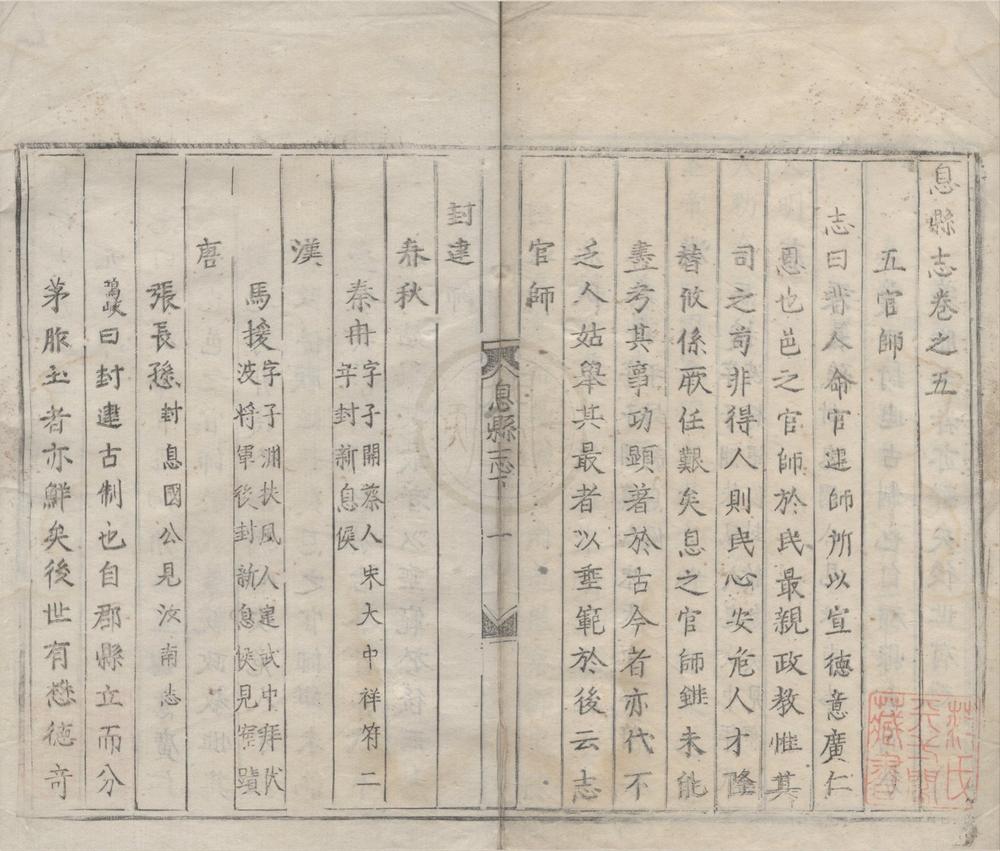 息縣志卷之五
五官師
志曰昔人命官建師所以宣德意廣仁
恩也邑之官師於民最親政教惟其
司之苟非得人則民心安危人才隆
替攸係厥任艱矣息之官師雖未能
盡考其事功顯著於古今者亦代不
乏人姑舉其最者以垂範於後云志
官師
息縣志下
一
封建
春秋
秦冉字子開蔡人宋大中祥符二
年封新息侯
漢
馬援字子淵扶風人建武中拜伏
波將軍後封新息侯見宦蹟
唐
張長孫封息國公見汝南志
曰封建古制也自郡縣立而分
茅胙土者亦鮮矣後世有懋德奇
氏
藏書